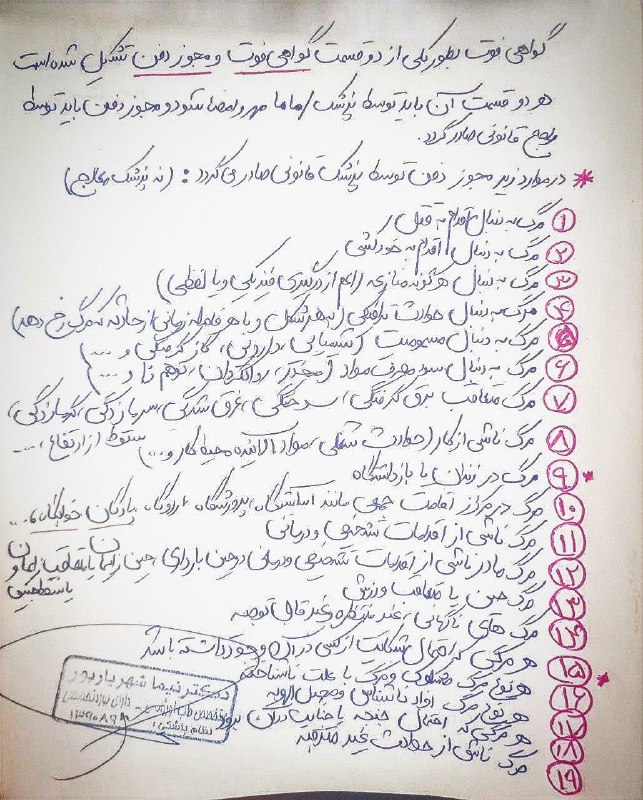 گواهی فوت بطور کلی از دو قسمت گواهی فوت و مجوز دفن تشکیل شده است
هر دو قسمت آن باید توسط پزشک / ماما مهر و امضا شود و مجوز دفن باید توسط
مراجع قانونی صادر گردد.
* در موارد زیر مجوز دفن توسط پزشک قانونی صادر می گردد : (نه پزشک معالج)
۱ مرگ به دنبال اقدام به قتل
۲ مرگ به دنبال اقدام به خودکشی
۳ مرگ به دنبال هرگونه منازعه (اعم از درگیری فیزیکی و یا لفظی)
۴ مرگ به دنبال حوادث ترافیکی (به هر شکل و با هر فاصله زمانی از حادثه که مرگ رخ دهد)
۵ مرگ به دنبال مسمومیت (شیمیایی، دارویی، گاز گرفتگی و ...)
۶ مرگ به دنبال سوء مصرف مواد (مخدر، روانگردان، توهم زا و ...)
۷ مرگ متعاقب برق گرفتگی، سوختگی، غرق شدگی، سرمازدگی، گرمازدگی،
سقوط از ارتفاع، ...
۸ مرگ ناشی از کار (حوادث شغلی، مواد آلاینده محیط کار و ...)
* ۹ مرگ در زندان یا بازداشتگاه
۱۰ مرگ در مراکز اقامت جمعی مانند آسایشگاه، پرورشگاه، اردوگاه، پادگان، خوابگاه، ...
۱۱ مرگ ناشی از اقدامات تشخیصی و درمانی
۱۲ مرگ مادر ناشی از اقدامات تشخیصی و درمانی در حین بارداری، حین زایمان یا متعاقب زایمان و
یا سقط جنین
۱۳ مرگ حین یا متعاقب ورزش
۱۴ مرگ های ناگهانی، غیر منتظره و غیر قابل توجیه
۱۵ هر مرگی که احتمال شکایت از کسی در آن وجود داشته باشد
* ۱۶ هر نوع مرگ مشکوک و مرگ با علت ناشناخته
۱۷ هر نوع مرگ افراد ناشناس و مجهول الهویه
۱۸ هر مرگی که احتمال جنحه یا جنایت در آن برود
۱۹ مرگ ناشی از حوادث غیر مترقبه
دکتر نیما شهریارپور